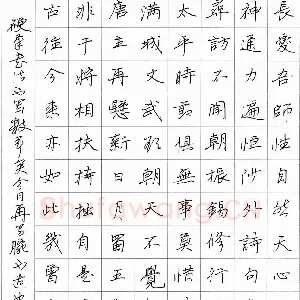 長愛吾師性自然天心
神通力遍恒沙外諦句
尋訪不聞朝振錫修行
太平時俱無事莫惜
滿城文武欲朝天不覺
唐主再懸新日月蜀王
非干將相扶持拙自是
古往今來亦如此幾曾
硬筆書法寫數今日再寫